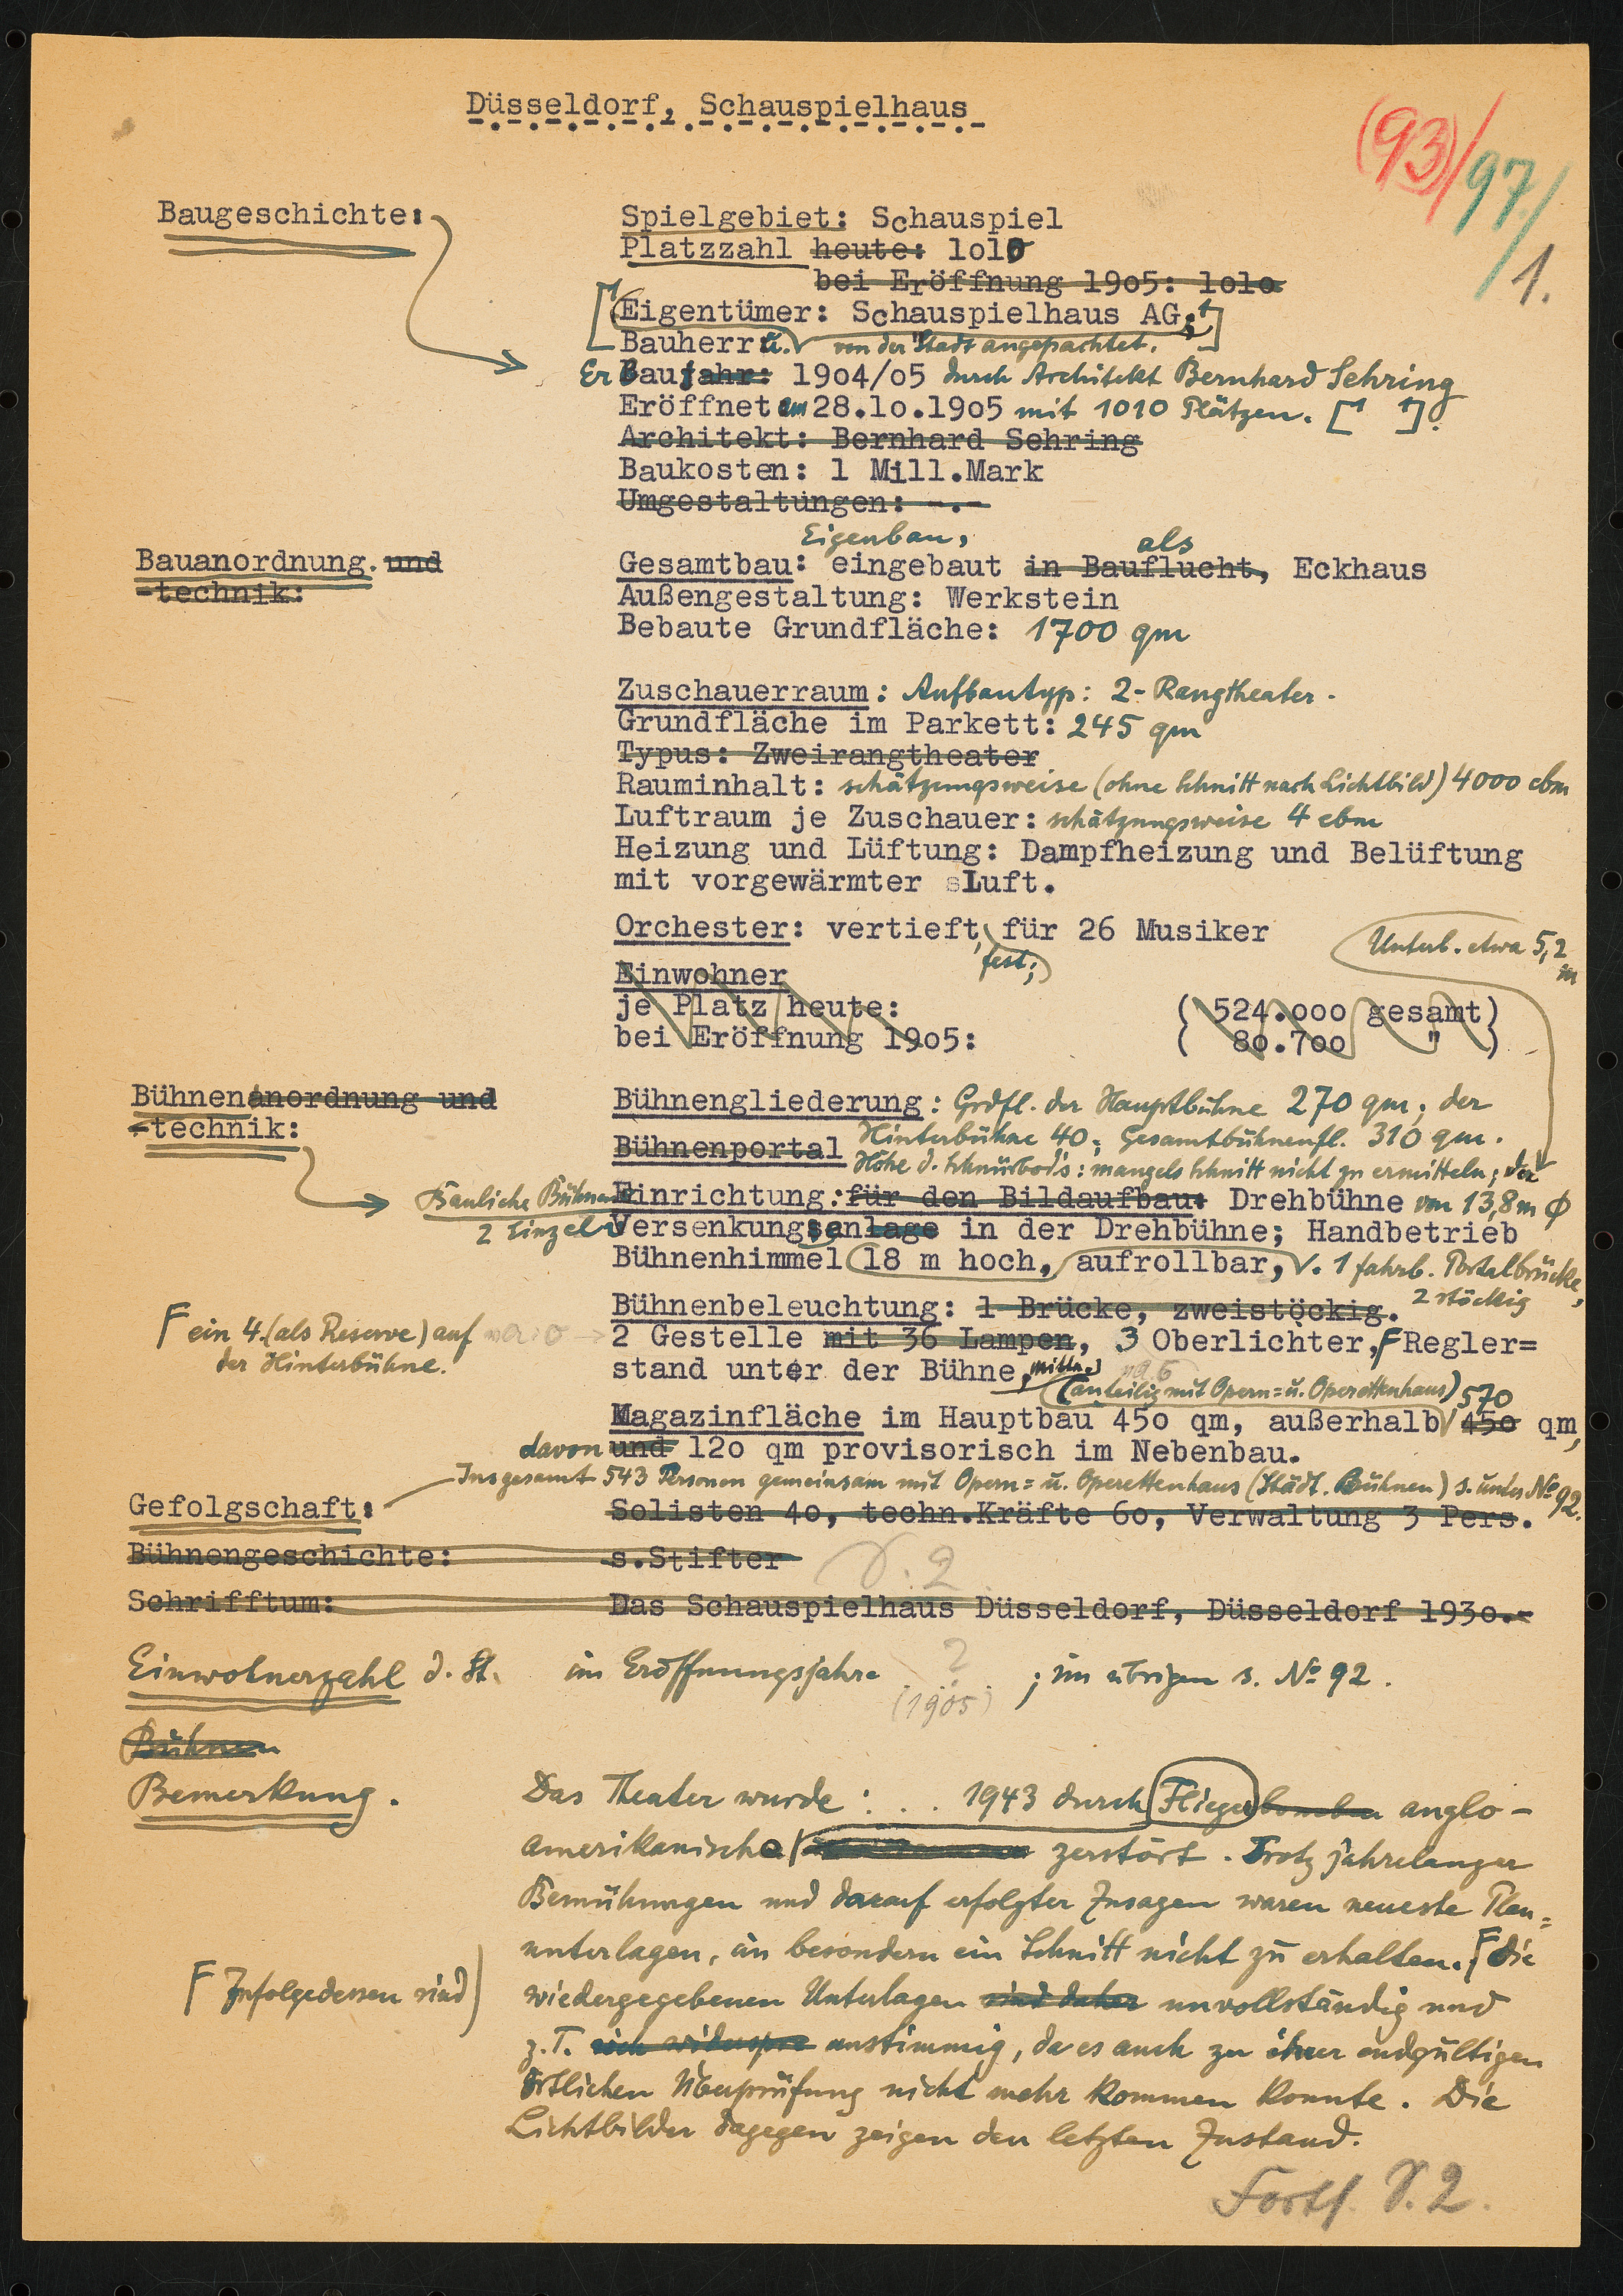 Düsseldorf, Schauspielhaus
(93)/97/1.
Baugeschichte:
Spielgebiet: Schauspiel
Platzzahl heute: 1010
bei Eröffnung 19o5: lolo
Eigentümer: Schauspielhaus AG;
Bauherr u. von der Stadt angepachtet.
Erbaut Baujahr: 19o4/o5 durch Architekt Bernhard Sehring
Eröffnet am 28.1o.19o5 mit 1010 Plätzen. [ ].
Architekt: Bernhard Sehring
Baukosten: 1 Mill.Mark
Umgestaltungen: -.-
Bauanordnung. und
-technik:
Eigenbau, als
Gesamtbau: eingebaut in Bauflucht, Eckhaus
Außengestaltung: Werkstein
Bebaute Grundfläche: 1700 qm
Zuschauerraum: Aufbautyp: 2-Rangtheater.
Grundfläche im Parkett: 245 qm
Typus: Zweirangtheater
Rauminhalt: schätzungsweise (ohne Schnitt nach Lichtbild) 4000 cbm
Luftraum je Zuschauer: schätzungsweise 4 cbm
Heizung und Lüftung: Dampfheizung und Belüftung
mit vorgewärmter Luft.
Orchester: vertieft, für 26 Musiker
fest;
Unterb. etwa 5,2 m
Einwohner
je Platz heute: ( 524.ooo gesamt)
bei Eröffnung 19o5: ( 8o.7oo " )
Bühnenanordnung und
-technik:
Bühnengliederung: Grdfl. der Hauptbühne 270 qm; der
Hinterbühne 40; Gesamtbühnenfl. 310 qm.
Bühnenportal
Höhe d. Schnürbod's: mangels Schnitt nicht zu ermitteln; der
Bauliche Bühnen
Einrichtung: für den Bildaufbau: Drehbühne von 13,8 m Φ
2 Einzel Versenkungsanlage in der Drehbühne; Handbetrieb
Bühnenhimmel 18 m hoch, aufrollbar, . 1 fahrb. Portalbrücke,
2 stöckig
Bühnenbeleuchtung: 1 Brücke, zweistöckig.
F ein 4. (als Reserve) auf
der Hinterbühne.
2 Gestelle mit 36 Lampen, 3 Oberlichter, F Regler=
stand unter der Bühne, mitten
(anteilig mit Opern= u. Operettenhaus) 570
Magazinfläche im Hauptbau 45o qm, außerhalb 45o qm,
davon und 12o qm provisorisch im Nebenbau.
Insgesamt 543 Personen gemeinsam mit Opern= u. Operettenhaus (Städt. Bühnen) s. unter No 92.
Gefolgschaft:
Solisten 4o, techn.Kräfte 6o, Verwaltung 3 Pers.
Bühnengeschichte: s.Stifter
S. 2
Schrifftum: Das Schauspielhaus Düsseldorf, Düsseldorf 193o.-
Einwohnerzahl d. St. im Eröffnungsjahre ? ; im übrigen s. No 92.
(1905)
Bühnen
Bemerkung.
Das Theater wurde : . . 1943 durch Fliegerbomben anglo-
amerikanische zerstört. Trotz jahrelanger
Bemühungen und darauf erfolgter Zusagen waren neueste Plan=
unterlagen, im besondern ein Schnitt nicht zu erhalten. F die
F Infolgedessen sind
wiedergegebenen Unterlagen sind daher unvollständig und
z.T. sich widerspre unstimmig, da es auch zu einer endgültigen
örtlichen Überprüfung nicht mehr kommen konnte. Die
Lichtbilder dagegen zeigen den letzten Zustand.
Forts. S. 2.